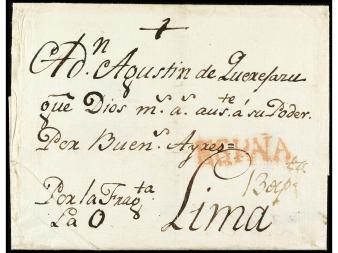 +
A Dn Agustin de Querejazu
gue Dios ms. as. auste. á su Poder.
Por Buens. Ayres=
ESPAÑA
Por la Fragta
La O
Lima